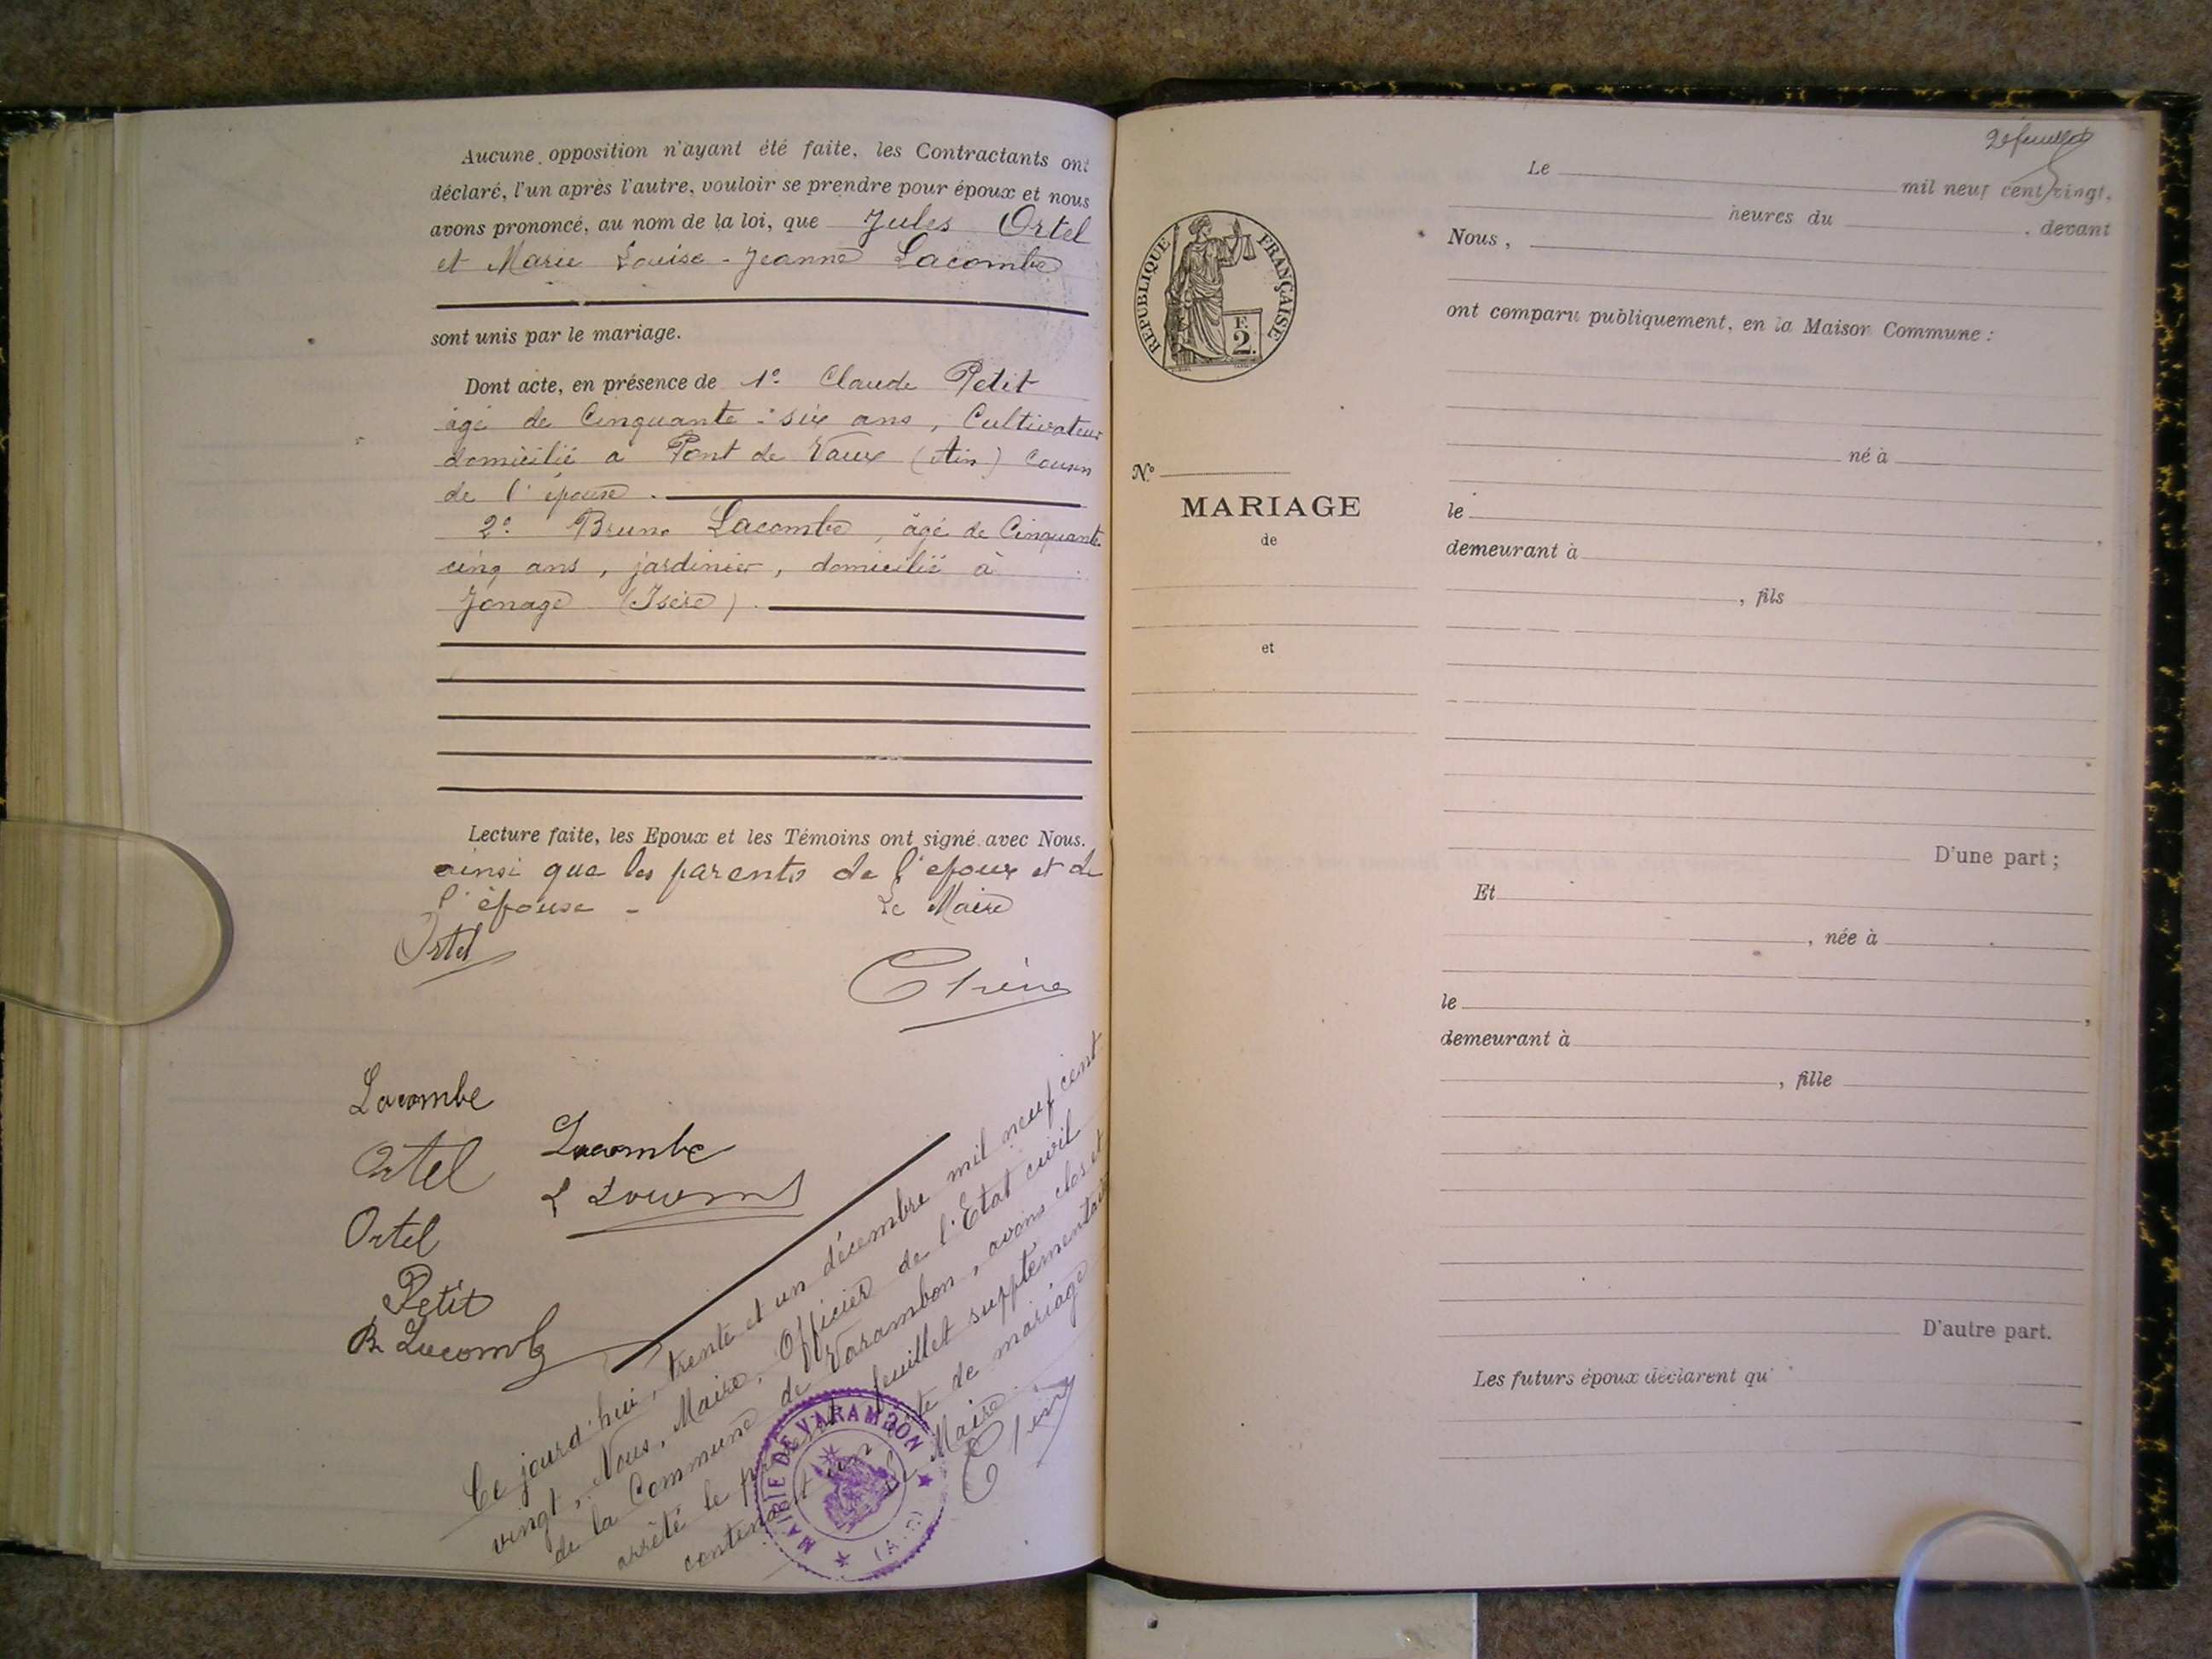 Aucune opposition n'ayant été faite, les Contractants ont
déclaré, l'un après l'autre, vouloir se prendre pour époux et nous
avons prononcé, au nom de la loi, que Jules Ortel
et Marie Louise-Jeanne Lacombe
sont unis par le mariage.
Dont acte, en présence de 1º Claude Petit
âgé de Cinquante-six ans, Cultivateur
domicilié à Pont de Vaux (Ain) Cousin
de l'épouse.
2º Bruno Lacombe, âgé de Cinquante
cinq ans, jardinier, domicilié à
Jonage (Isère).
Lecture faite, les Epoux et les Témoins ont signé avec Nous.
ainsi que les parents de l'époux et de
l'épouse -
Le Maire
Ortel
Lacombe
Ortel
Lacombe
Ortel
Petit
B. Lacombe
Ce jourd'hui, trente et un décembre mil neuf cent
vingt, Nous, Maire, Officier de l'Etat civil
de la Commune de Varambon, avons clos et
arrêté le présent feuillet supplémentaire
contenant un acte de mariage
Le Maire
MAIRIE DE VARAMBON
(AIN)
2e feuillet
Le mil neuf cent vingt,
heures du , devant
Nous,
ont comparu publiquement, en la Maison Commune :
né à
le
demeurant à
, fils
D'une part ;
Et
, née à
le ,
demeurant à
, fille
D'autre part.
Les futurs époux déclarent qu'
REPUBLIQUE FRANÇAISE
F.
2.
Nº
MARIAGE
de
et